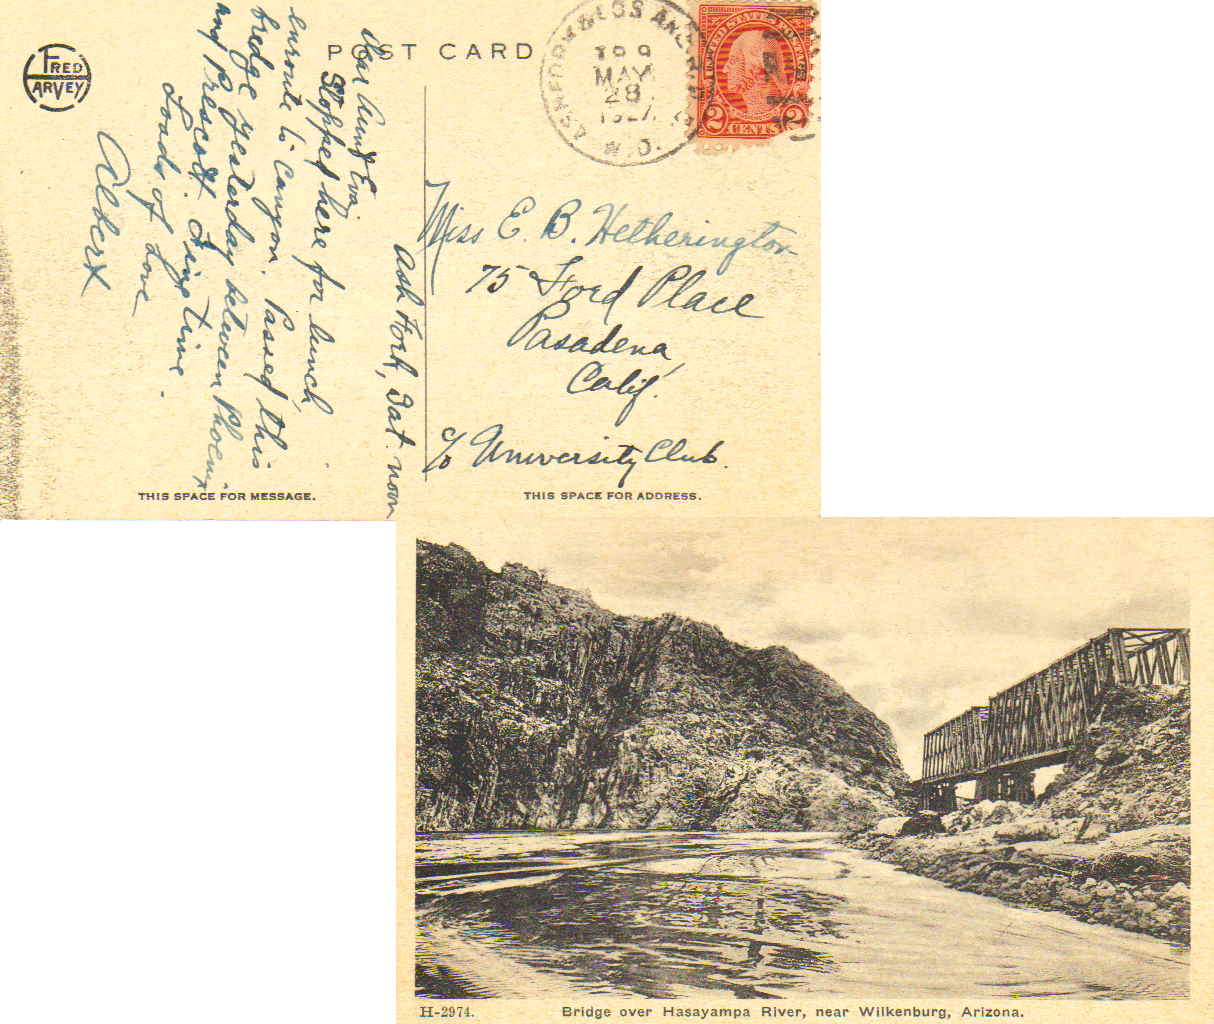 POST CARD
FRED
HARVEY
ASHFORK & LOS ANG
TR 9
MAY
28
1927
W.D.
UNITED STATES POSTAGE
2 CENTS 2
Ash Fork, Sat. noon
Dear Aunt Eva:
Stopped here for lunch
enroute to Canyon. Passed this
bredge yesterday between Phoenix
and Prescott. Fine time.
Loads of Love
Albert
Miss E. B. Hetherington
75 Ford Place
Pasadena,
Calif.
c/o University Club.
THIS SPACE FOR MESSAGE.
THIS SPACE FOR ADDRESS.
H-2974.
Bridge over Hasayampa River, near Wilkenburg, Arizona.